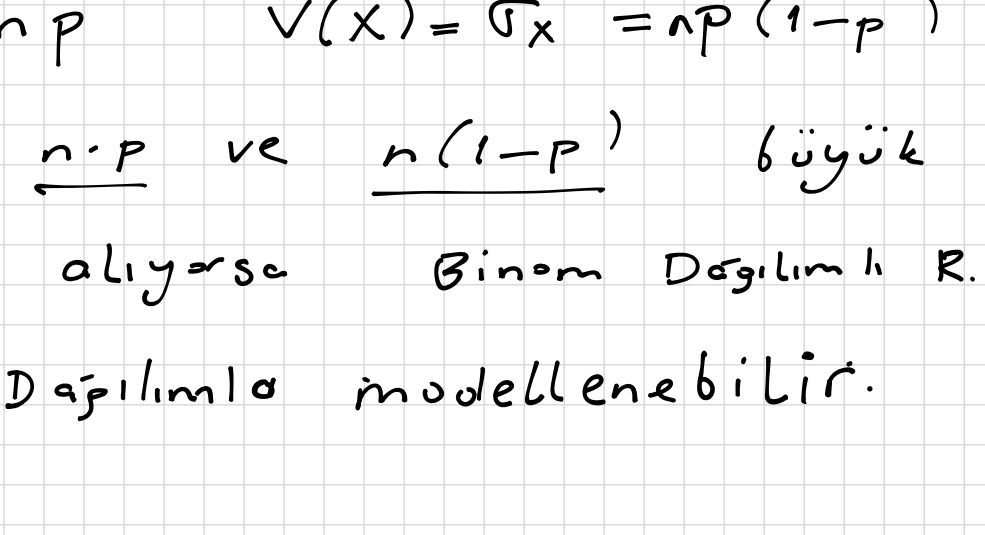 np V(X) = σx = np(1-p)
n.p ve n(1-p) büyük
alıyorsa Binom Dağılımlı R.
Dağılımla modellenebilir.